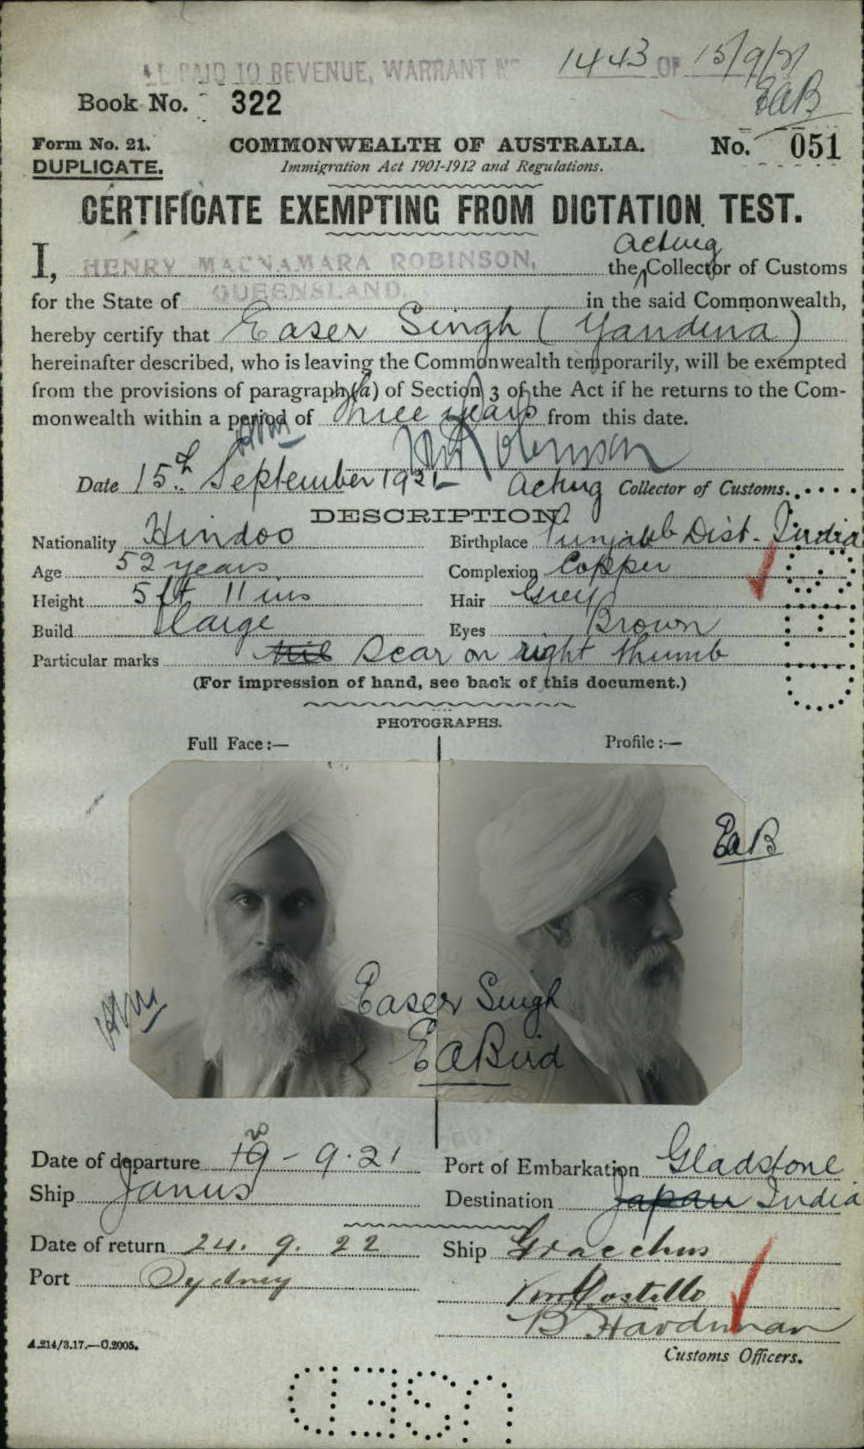 1443 OF 15/9/21
PAID TO REVENUE, WARRANT Nº
EaB
Book No. 322
Form No. 21. COMMONWEALTH OF AUSTRALIA. No. 051
DUPLICATE. Immigration Act 1901-1912 and Regulations.
CERTIFICATE EXEMPTING FROM DICTATION TEST.
Acting
I, HENRY MACNAMARA ROBINSON, the Collector of Customs
for the State of QUEENSLAND, in the said Commonwealth,
hereby certify that Easer Singh (Yandina)
hereinafter described, who is leaving the Commonwealth temporarily, will be exempted
from the provisions of paragraph (a) of Section 3 of the Act if he returns to the Com-
monwealth within a period of three years from this date.
HM Robinson
Date 15th September 1921 Acting Collector of Customs.
DESCRIPTION.
Nationality Hindoo Birthplace Punjaub Dist. India
Age 52 years Complexion Copper
Height 5 ft 11 ins Hair Grey
Build Large Eyes Brown
Particular marks Nil Scar on right thumb
(For impression of hand, see back of this document.)
PHOTOGRAPHS.
Full Face:— Profile:—
EaB
Easer Singh
EaBird
Date of departure 20-9-21 Port of Embarkation Gladstone
Ship Janus Destination Japan India
Date of return 24.9.22 Ship Gracchus
Port Sydney
Costello
B Hardiman
A.214/3.17.—C.2005. Customs Officers.
USED